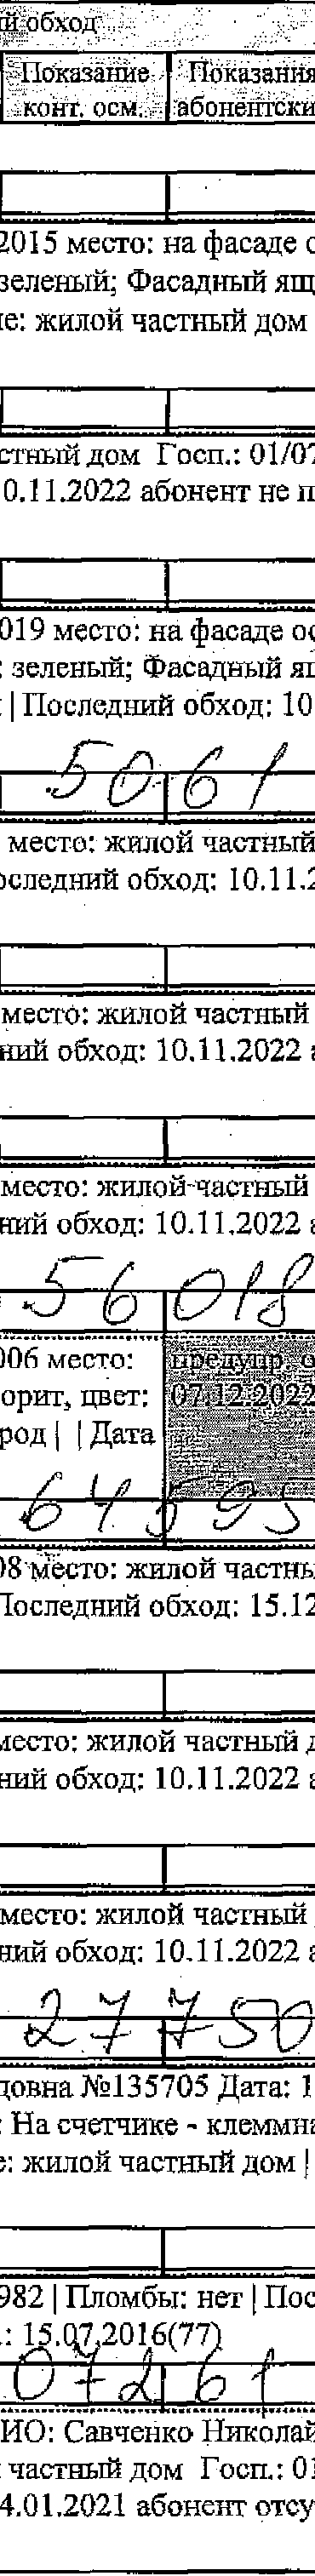 й обход
Показание Показания
конт. осм. абонентски
2015 место: на фасаде о
зеленый; Фасадный ящ
е: жилой частный дом
стный дом Госп.: 01/07
0.11.2022 абонент не п
019 место: на фасаде ос
: зеленый; Фасадный ящ
| Последний обход: 10
5061
место: жилой частный
оследний обход: 10.11.2
место: жилой частный
ний обход: 10.11.2022 а
место: жилой частный
ний обход: 10.11.2022 а
56018
006 место: предупр. о
орит, цвет: 07.12.2022
род | | Дата
64595
08 место: жилой частны
Последний обход: 15.12
место: жилой частный д
ний обход: 10.11.2022 а
место: жилой частный
ний обход: 10.11.2022 а
27750
довна №135705 Дата: 1
: На счетчике - клеммна
е: жилой частный дом |
982 | Пломбы: нет | Пос
.: 15.07.2016(77)
07261
ИО: Савченко Николай
частный дом Госп.: 01
4.01.2021 абонент отсу